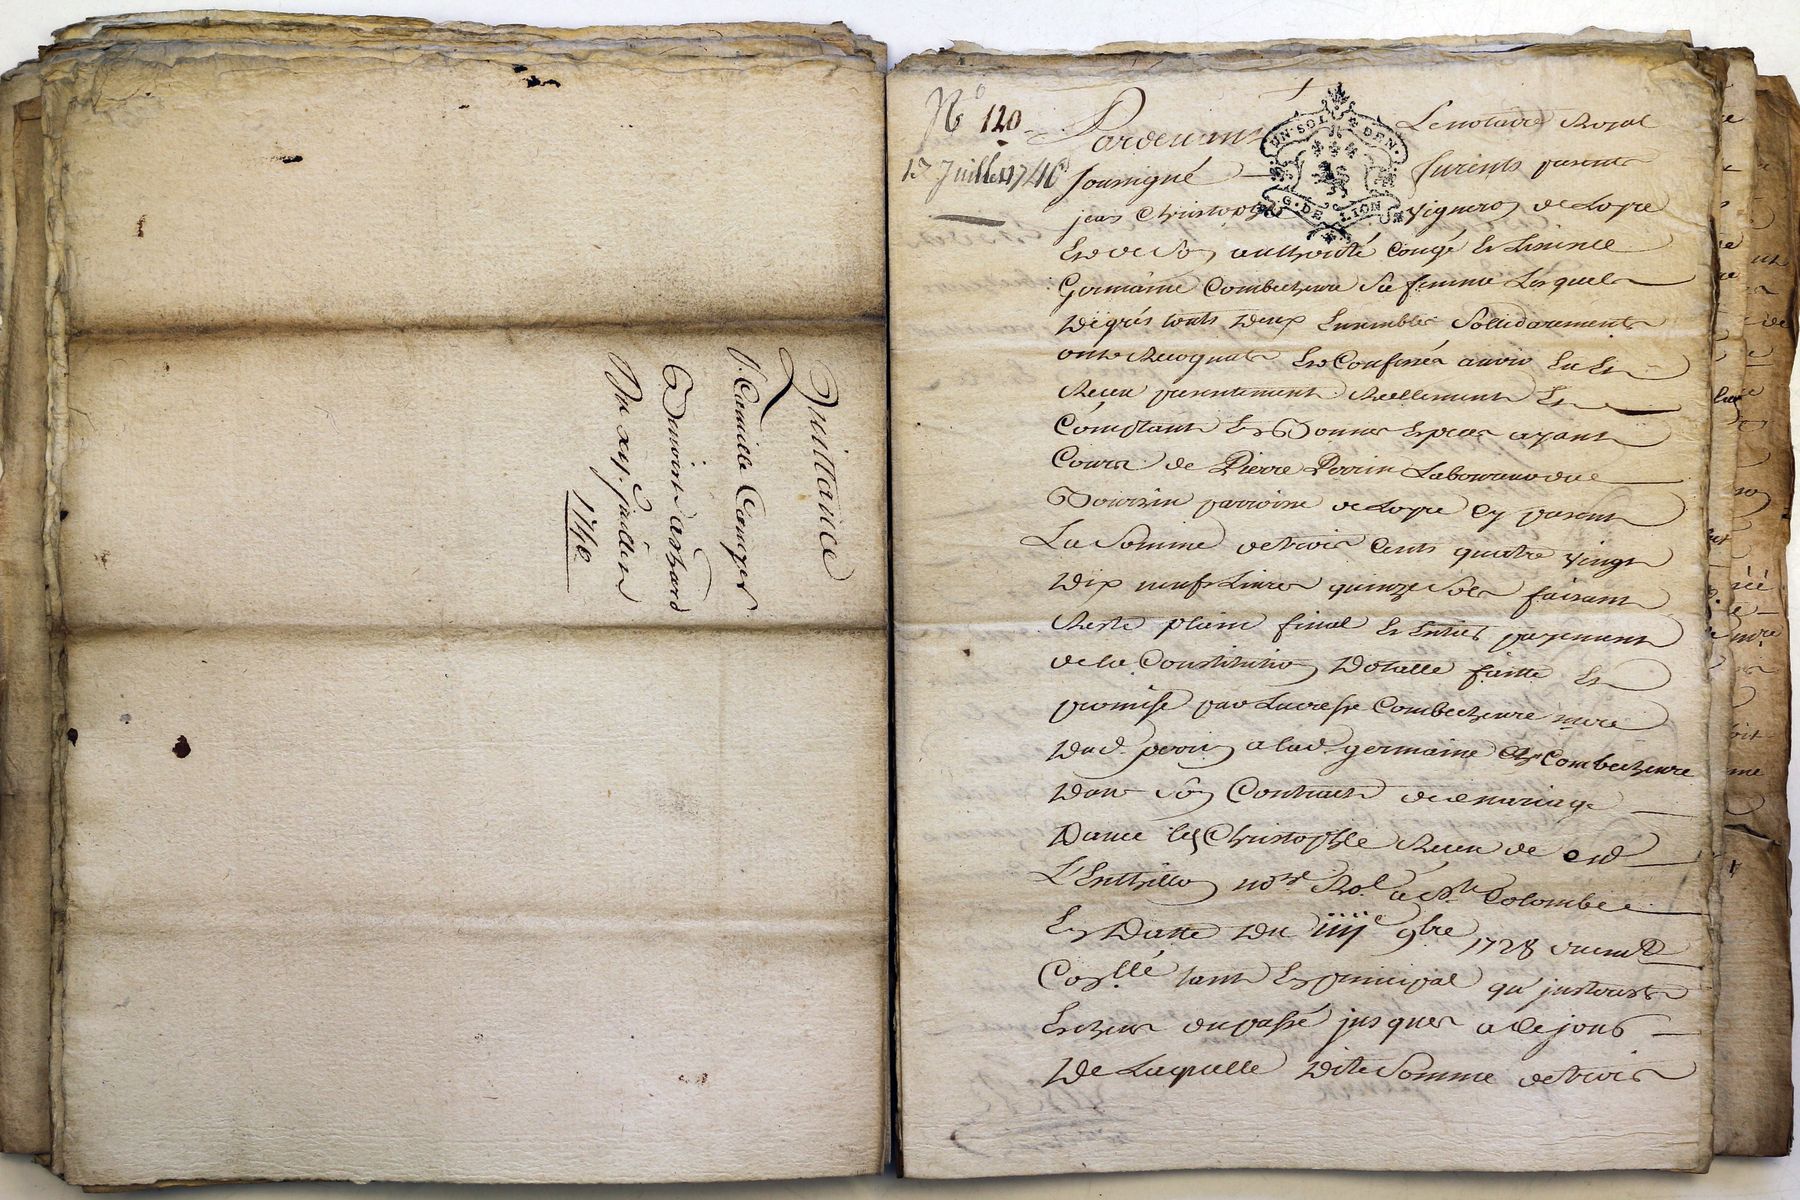 Quittance
Camille
Du xij. Juillet
1746
N° 120
Juillet 1746
Pardevant Le notaire Royal
UN · SOL DEN ·
G · DE LION
soussigné furent present
jean Christophle vigneron de Loyre
Et de Son authorité congé et Licence
Germaine Combechevre Sa femme Lesquels
Degrés touts Deux Ensembles Solidairement
ont Recognut Et Confessé avoir Eu Et
Receu presentement Reellement Et
Comptant En Bonnes Especes ayant
Cours de Pierre Perrin Laboureur de
parroisse de Loyre Cy present
La Somme de trois Cents quatre vingt
Dix neufs Livres quinze Sols faisant
Reste plain final Et Entier payement
de la Constitution Dotalle faitte Et
promise par Combechevre mere
Dud. perrin a lad. germaine Combechevre
Dans Son Contract de mariage
Christophle Receu de
not.re Ro.l a S.te Colombe
En Datte Du iiii.e 9bre 1728
tant En principal qu'
Escheus du passé jusques a Ce jour
De Laquelle Ditte Somme de trois